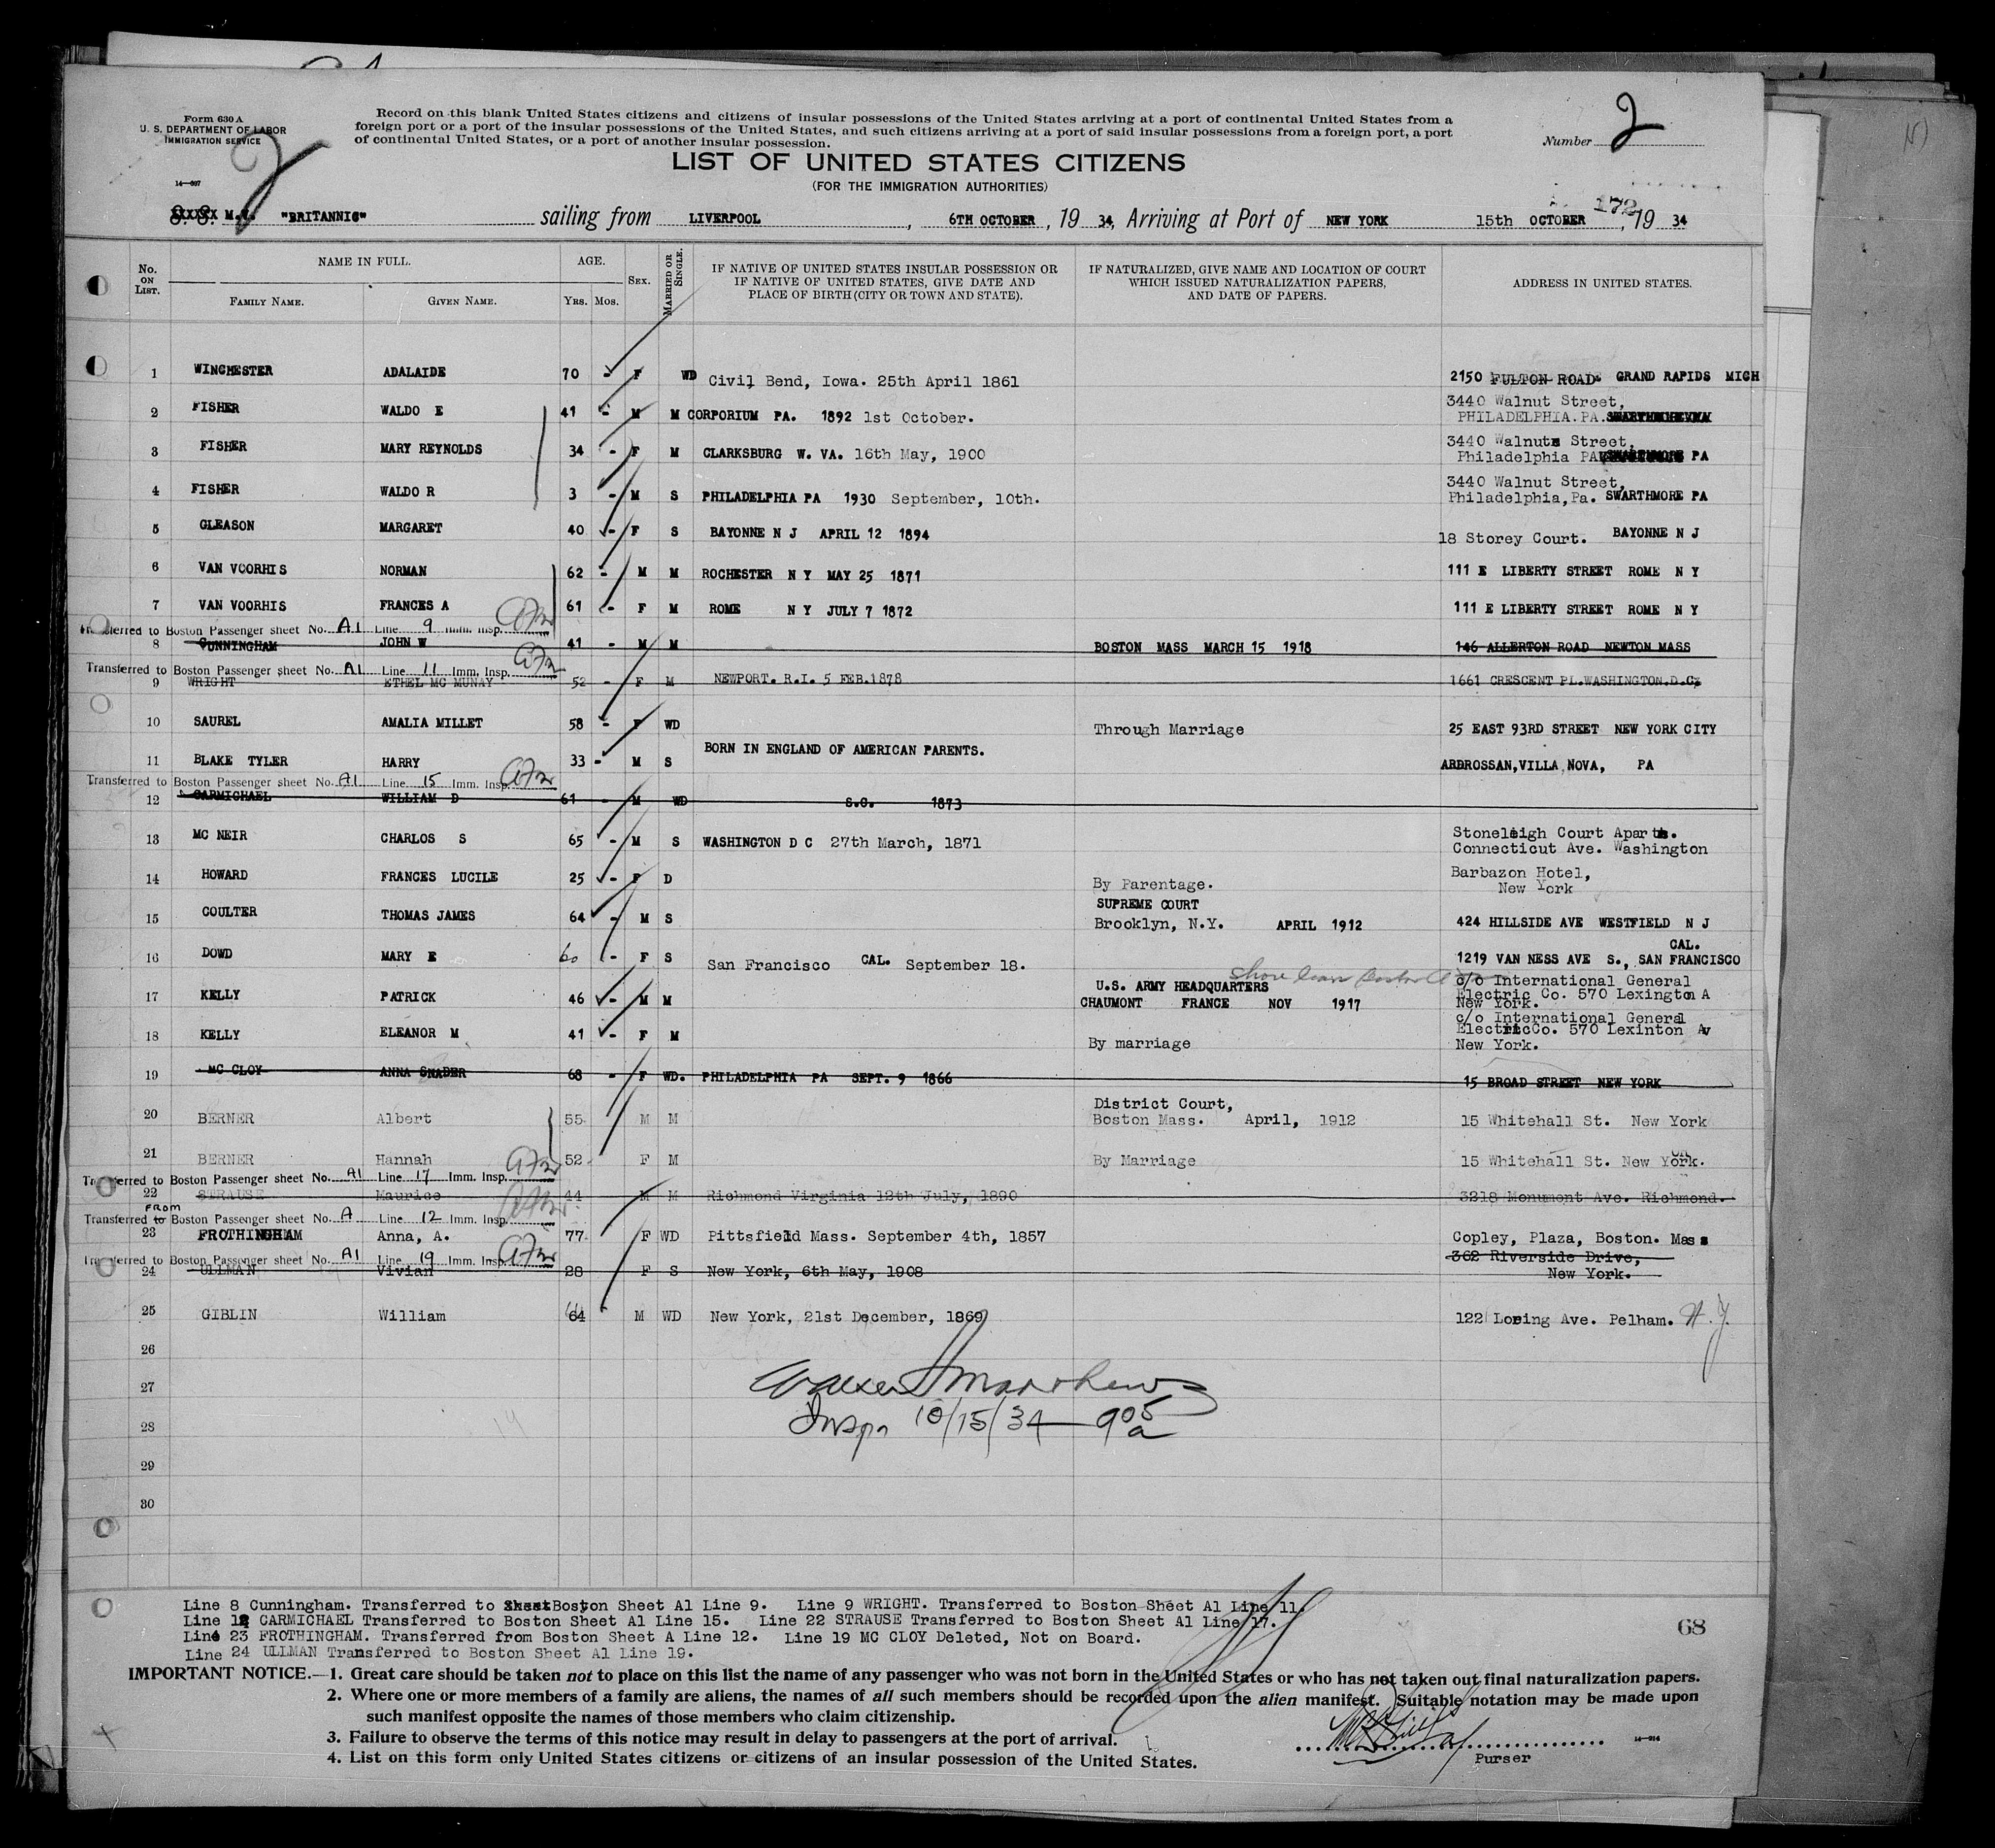 Form 630 A
U. S. DEPARTMENT OF LABOR
IMMIGRATION SERVICE
14—367
2
Record on this blank United States citizens and citizens of insular possessions of the United States arriving at a port of continental United States from a
foreign port or a port of the insular possessions of the United States, and such citizens arriving at a port of said insular possessions from a foreign port, a port
of continental United States, or a port of another insular possession.
Number 2
LIST OF UNITED STATES CITIZENS
(FOR THE IMMIGRATION AUTHORITIES)
172
S. S. M.V. "BRITANNIC" sailing from LIVERPOOL, 6TH OCTOBER, 19 34, Arriving at Port of NEW YORK 15th OCTOBER, 19 34
No. ON LIST. NAME IN FULL. FAMILY NAME. GIVEN NAME. AGE. YRS. MOS. SEX. MARRIED OR SINGLE.
IF NATIVE OF UNITED STATES INSULAR POSSESSION OR
IF NATIVE OF UNITED STATES, GIVE DATE AND
PLACE OF BIRTH (CITY OR TOWN AND STATE).
IF NATURALIZED, GIVE NAME AND LOCATION OF COURT
WHICH ISSUED NATURALIZATION PAPERS,
AND DATE OF PAPERS.
ADDRESS IN UNITED STATES.
1 WINCHESTER ADALAIDE 70 - F WD Civil Bend, Iowa. 25th April 1861 2150 FULTON ROAD. GRAND RAPIDS MICH
2 FISHER WALDO E 41 - M M CORPORIUM PA. 1892 1st October. 3440 Walnut Street,
PHILADELPHIA.PA.
3 FISHER MARY REYNOLDS 34 - F M CLARKSBURG W. VA. 16th May, 1900 3440 Walnuts Street,
Philadelphia PA SWARTHMORE PA
4 FISHER WALDO R 3 - M S PHILADELPHIA PA 1930 September, 10th. 3440 Walnut Street,
Philadelphia,Pa. SWARTHMORE PA
5 GLEASON MARGARET 40 - F S BAYONNE N J APRIL 12 1894 18 Storey Court. BAYONNE N J
6 VAN VOORHIS NORMAN 62 - M M ROCHESTER N Y MAY 25 1871 111 E LIBERTY STREET ROME N Y
7 VAN VOORHIS FRANCES A 61 - F M ROME N Y JULY 7 1872 111 E LIBERTY STREET ROME N Y
Transferred to Boston Passenger sheet No. A1 Line 9 Imm. Insp.
8 CUNNINGHAM JOHN W 41 - M M BOSTON MASS MARCH 15 1918 146 ALLERTON ROAD NEWTON MASS
Transferred to Boston Passenger sheet No. A1 Line 11 Imm. Insp.
9 WRIGHT ETHEL MC MUNAY 52 - F M NEWPORT. R.I. 5 FEB.1878 1661 CRESCENT PL.WASHINGTON.D.C.
10 SAUREL AMALIA MILLET 58 - F WD Through Marriage 25 EAST 93RD STREET NEW YORK CITY
11 BLAKE TYLER HARRY 33 - M S BORN IN ENGLAND OF AMERICAN PARENTS. ARDROSSAN,VILLA NOVA, PA
Transferred to Boston Passenger sheet No. A1 Line 15 Imm. Insp.
12 CARMICHAEL WILLIAM D 61 - M WD S.C. 1873
13 MC NEIR CHARLOS S 65 - M S WASHINGTON D C 27th March, 1871 Stoneleigh Court Aparts.
Connecticut Ave. Washington
14 HOWARD FRANCES LUCILE 25 - F D By Parentage. Barbazon Hotel,
New York
15 COULTER THOMAS JAMES 64 - M S SUPREME COURT
Brooklyn, N.Y. APRIL 1912 424 HILLSIDE AVE WESTFIELD N J
16 DOWD MARY E 60 - F S San Francisco CAL. September 18. 1219 VAN NESS AVE S., SAN FRANCISCO CAL.
17 KELLY PATRICK 46 - M M U.S. ARMY HEADQUARTERS
CHAUMONT FRANCE NOV 1917 c/o International General
Electric Co. 570 Lexington A
New York.
18 KELLY ELEANOR M 41 - F M By marriage c/o International General
Electric Co. 570 Lexinton Av
New York.
19 MC CLOY ANNA SNADER 68 - F WD. PHILADELPHIA PA SEPT. 9 1866 15 BROAD STREET NEW YORK
20 BERNER Albert 55 M M District Court,
Boston Mass. April, 1912 15 Whitehall St. New York
21 BERNER Hannah 52 F M By Marriage 15 Whitehall St. New York.
Transferred to Boston Passenger sheet No. A1 Line 17 Imm. Insp.
22 STRAUSE Maurice 44 M M Richmond Virginia 12th July, 1890 3218 Monument Ave. Richmond.
FROM
Transferred to Boston Passenger sheet No. A Line 12 Imm. Insp.
23 FROTHINGHAM Anna, A. 77 F WD Pittsfield Mass. September 4th, 1857 Copley, Plaza, Boston. Mass
Transferred to Boston Passenger sheet No. A1 Line 19 Imm. Insp.
24 ULLMAN Vivian 28 F S New York, 6th May, 1908 362 Riverside Drive,
New York.
25 GIBLIN William 64 M WD New York, 21st December, 1869 122 Loring Ave. Pelham. N.Y.
26
27
28
29
30
Walker Matthews
Inspr 10/15/34 — 9 05 a
Line 8 Cunningham. Transferred to Boston Sheet A1 Line 9. Line 9 WRIGHT. Transferred to Boston Sheet A1 Line 11.
Line 12 CARMICHAEL Transferred to Boston Sheet A1 Line 15. Line 22 STRAUSE Transferred to Boston Sheet A1 Line 17.
Line 23 FROTHINGHAM. Transferred from Boston Sheet A Line 12. Line 19 MC CLOY Deleted, Not on Board.
Line 24 ULLMAN Transferred to Boston Sheet A1 Line 19.
68
IMPORTANT NOTICE.—1. Great care should be taken not to place on this list the name of any passenger who was not born in the United States or who has not taken out final naturalization papers.
2. Where one or more members of a family are aliens, the names of all such members should be recorded upon the alien manifest. Suitable notation may be made upon
such manifest opposite the names of those members who claim citizenship.
3. Failure to observe the terms of this notice may result in delay to passengers at the port of arrival.
4. List on this form only United States citizens or citizens of an insular possession of the United States.
Purser
14—314